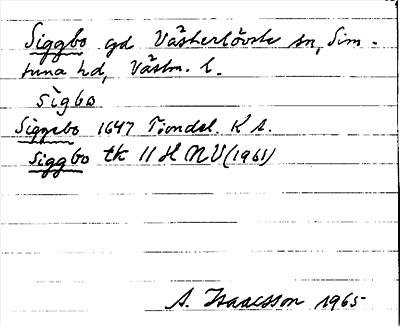 Siggbo gd Västerlövsta sn, Sim-
tuna hd, Västm. l.
sìgbo
Siggebo 1647 Tiondel. KA.
Siggbo tk 11 H NV (1961)
A. Isaacsson 1965